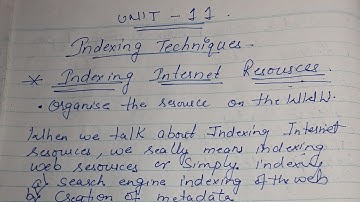 UNIT - 11.
Indexing Techniques -
* Indexing Internet Resources.
• Organise the resource on the WWW.
When we talk about Indexing Internet
resources, we really mean indexing
web resources or simply indexing
a) Search engine indexing of the web
b) Creation of metadata